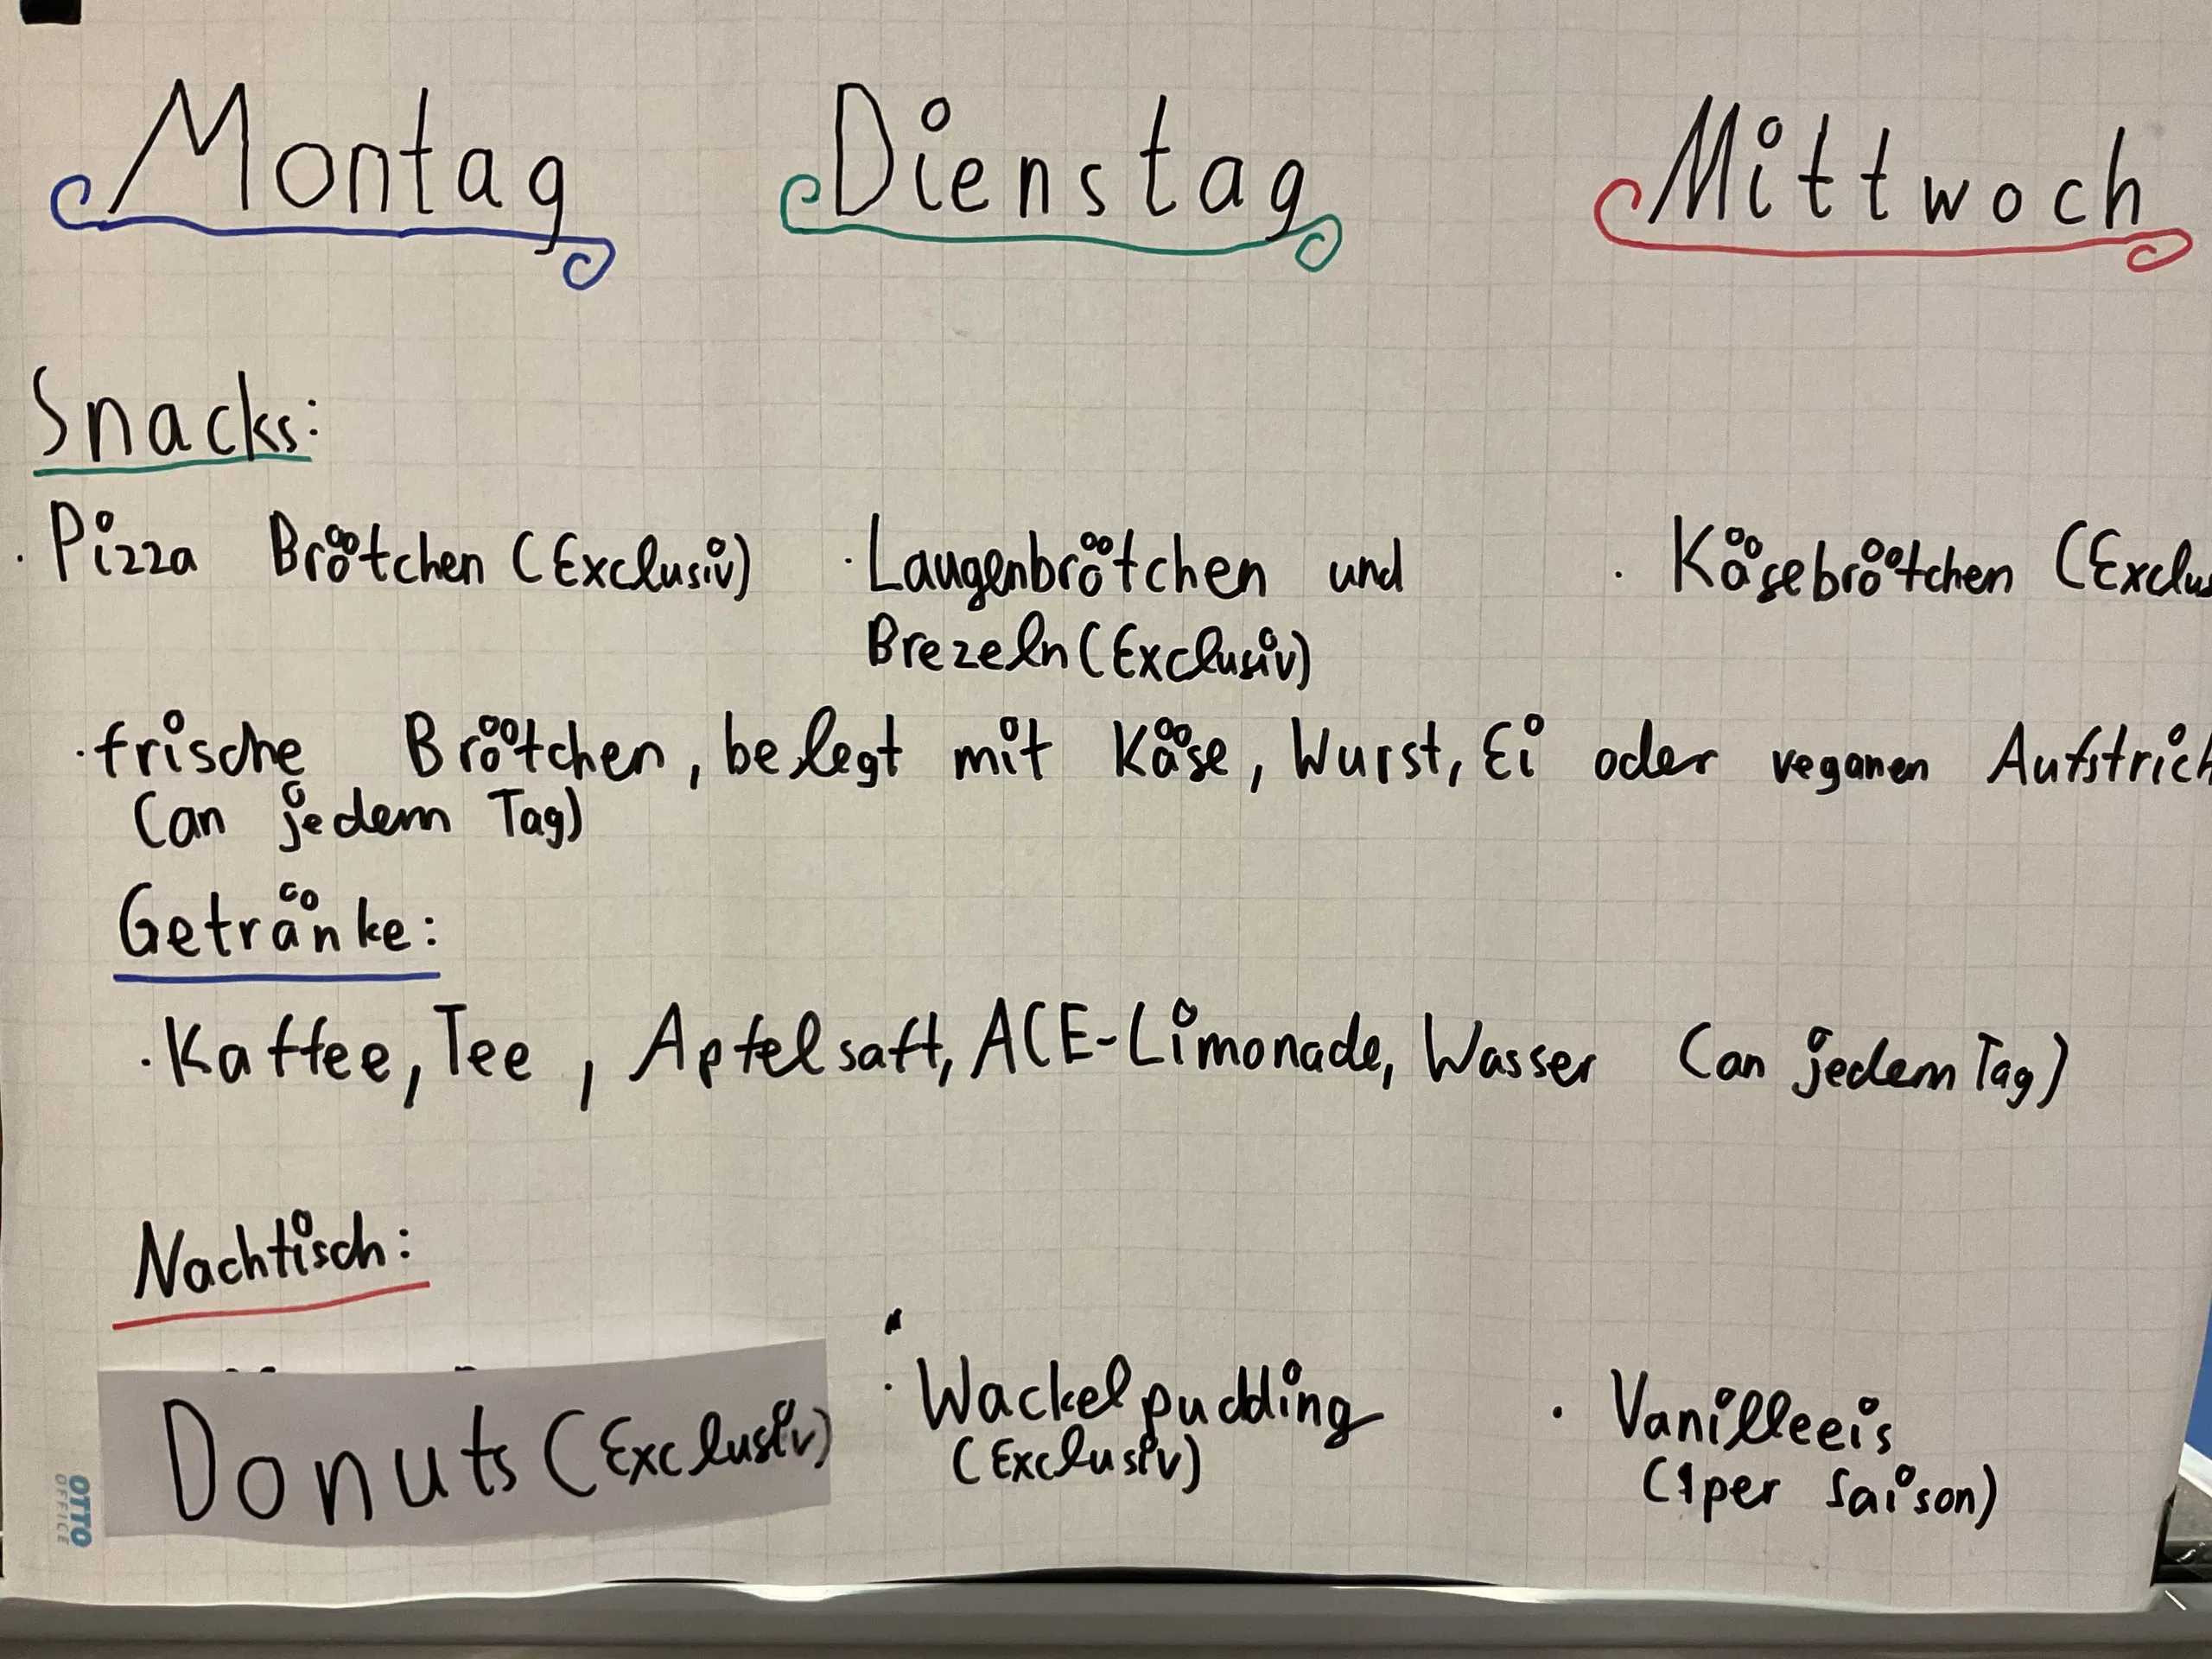 Montag Dienstag Mittwoch
Snacks:
· Pizza Brötchen (Exclusiv) · Laugenbrötchen und · Käsebrötchen (Exclus
Brezeln (Exclusiv)
· frische Brötchen, belegt mit Käse, Wurst, Ei oder veganen Aufstrich
(an jedem Tag)
Getränke:
· Kaffee, Tee, Apfelsaft, ACE-Limonade, Wasser (an jedem Tag)
Nachtisch:
Donuts (Exclusiv) · Wackelpudding · Vanilleeis
(Exclusiv) (1 per Saison)
OTTO
OFFICE